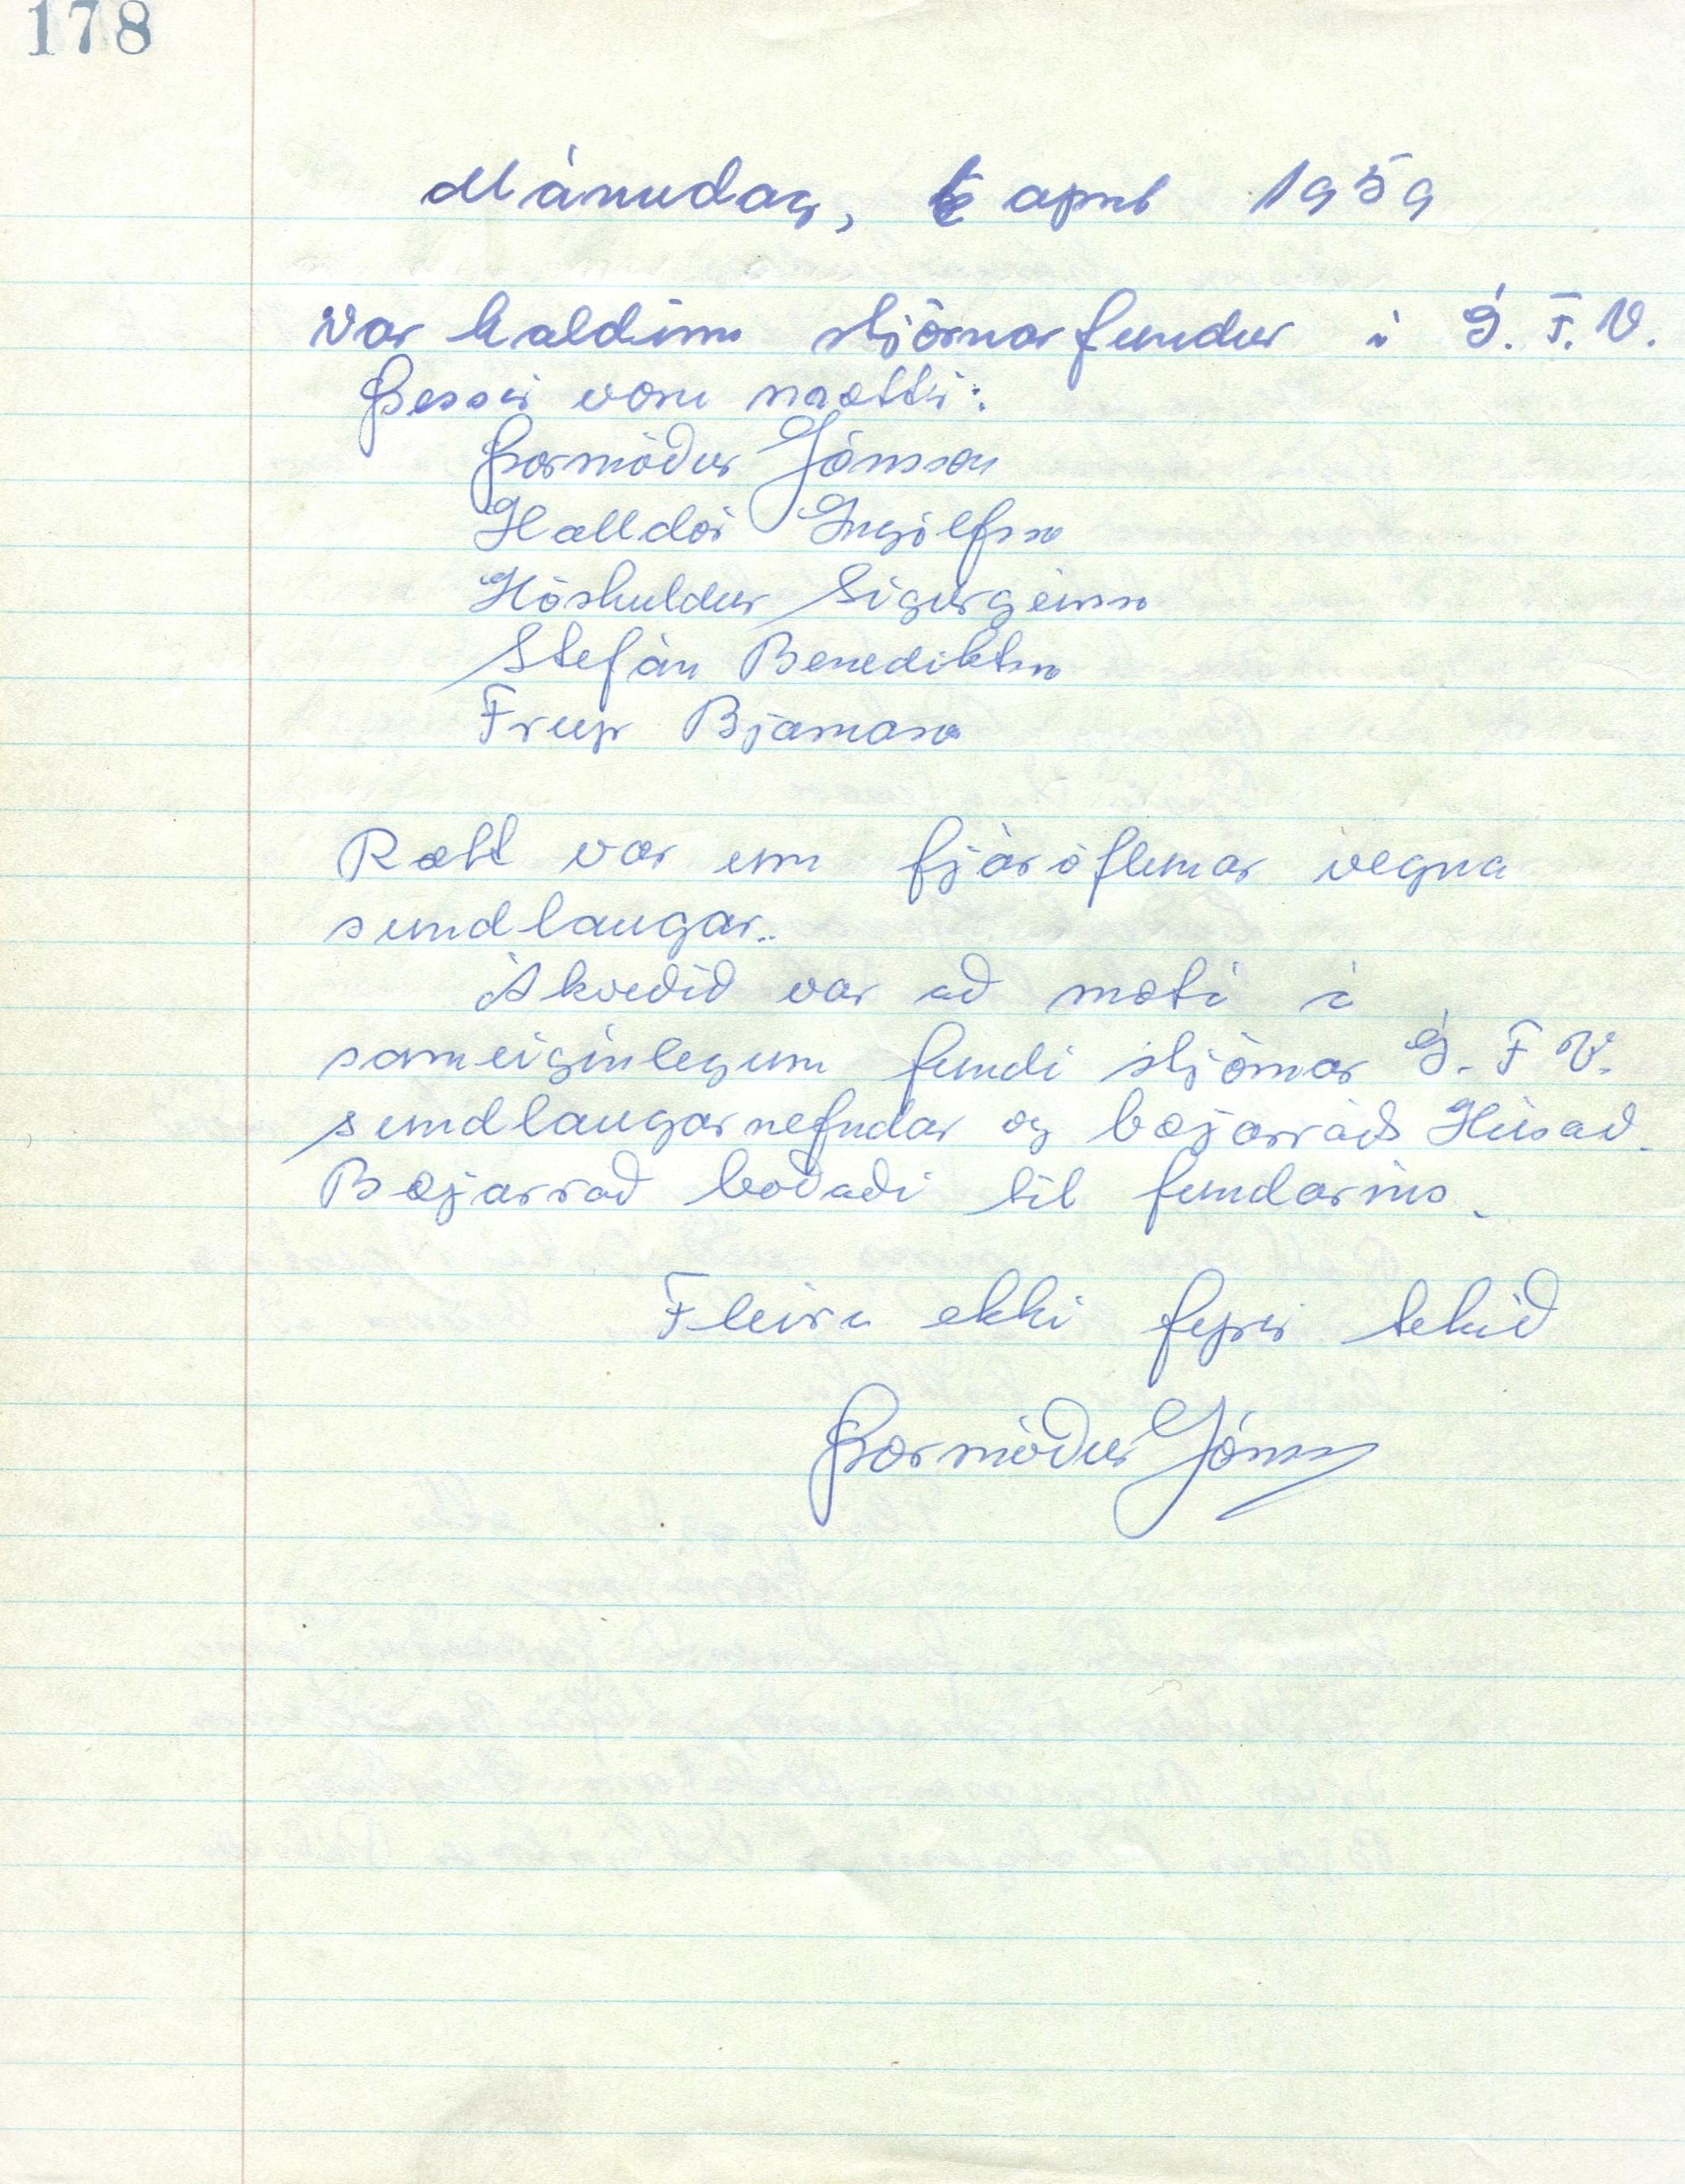 178
Mánudag, 6 apríl 1959
Var haldinn stjórnarfundur í Í. F. V.
Þessir voru mættir:
Þormóður Jónsson
Halldór Ingólfsso
Höskuldur Sigurgeirsso
Stefán Benediktsso
Freyr Bjarnaso
Rætt var um fjáröflunar vegna
sundlaugar.
Ákveðið var að mæti í
sameiginlegum fundi stjórnar Í. F V.
sundlaugarnefndar og bæjarráðs Húsav.
Bæjarráð boðaði til fundarins.
Fleira ekki fyrir tekið
Þormóður Jónsson